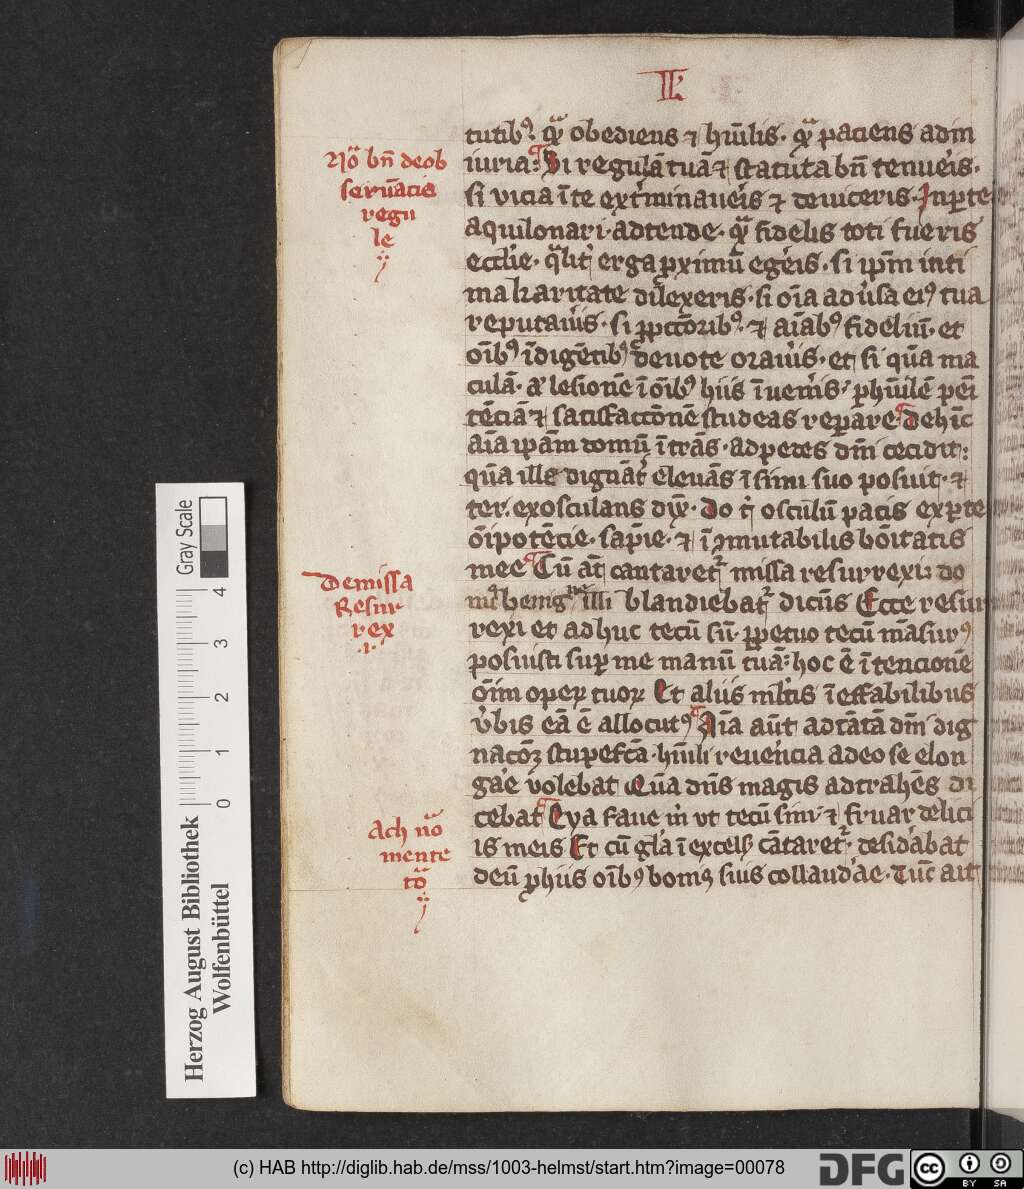 II.
tutibꝰ. qͣm obediens ⁊ hūilis. qͣm paciens ad in
iuria: Si regulā tuā ⁊ statuta bn̄ tenueris.
si vicia ī te exterminaueris ⁊ deuiceris. In ꝑte
aquilonari. adtende. qͣm fidelis toti fueris
eccl̓ie. qͣlit̓ erga ꝓximū egeris. si ip̄m inti
ma karitate dilexeris. si oīa aduersa eiꝰ tua
reputaueris. si ꝓ pctōribꝰ. ⁊ aīabꝰ fideliū. et
oībꝰ īdigētibꝰ deuote oraueris. et si qͣm ma
culā. aut lesionē ī oībꝰ hiis īueneris. ꝑ hūilē pēi
tēciā ⁊ satisfacc̄onē studeas reparare. Dehīc
aīa ip̄am domū ītrās. ad pedes dn̄i cecidit:
quā ille dignāt̓ eleuās ī sinu suo posuit. ⁊
ter. exosculans dix̄. Do t̓ osculū pacis ex ꝑte
oīpotēcie. sapīe. ⁊ īmutabilis bōitatis
mee Cū at̄ cantaretꝛ missa resurrexi: do
minꝰ benigne illi blandiebatꝛ dicēs Ecce resur
rexi et adhuc tecū sū. ꝑpetuo tecū māsurꝰ
posuisti suꝑ me manū tuā: hoc ē ītencionē
oīm oꝑum tuoꝝ Et aliis ml̓tis īeffabilibus
v̓bis eā ē allocutꝰ Aīa aūt ad tātā dn̄i dig
nac̄onem stupefc̄ta. hūili reuerēcia adeo se elon
gare volebat Quā dn̄s magis adtrahēs di
cebat Eya faue m̓ vt tecū sim. ⁊ fruar delici
is meis Et cū gl̓a ī excels̓ cātaretꝛ. desiderabat
deū ꝑ hiis oībꝰ bonis suis collaudare. Tūc ait
Nō bn̄ de ob
seruācia
regu
le
De missa
Resur
rex
.i.
Ach nō
mente
tō
Gray Scale
4
3
2
1
0
Herzog August Bibliothek
Wolfenbüttel
(c) HAB http://diglib.hab.de/mss/1003-helmst/start.htm?image=00078
DFG
cc
BY SA